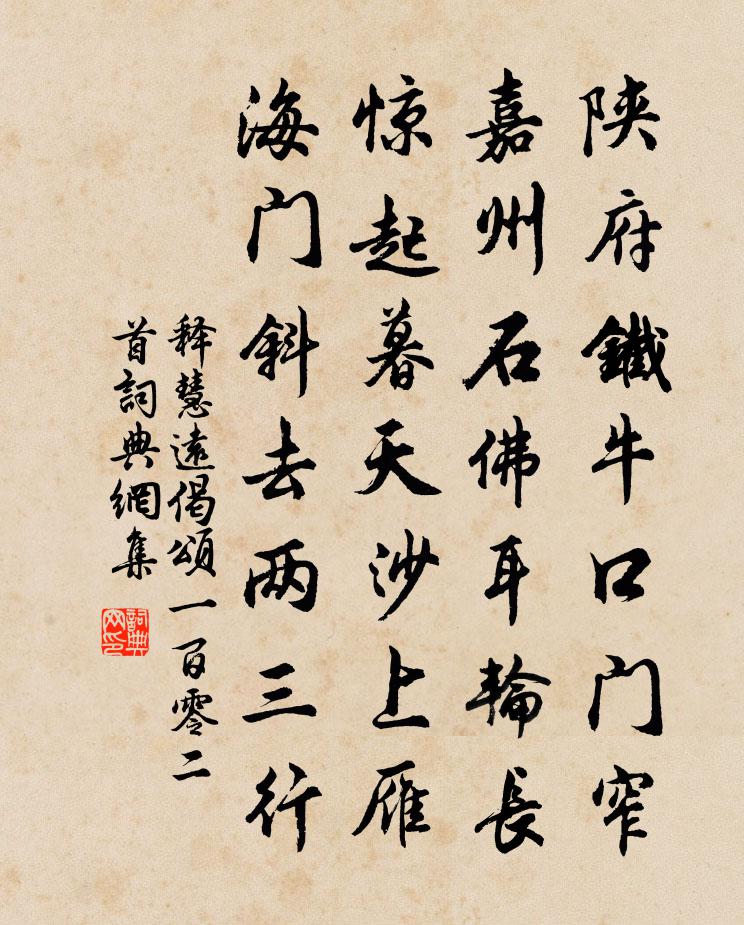 陕府鐵牛口门窄
嘉州石佛耳輪長
惊起暮天沙上雁
海门斜去两三行
释慧遠偈頌一百零二
首詞典網集
詞典网印